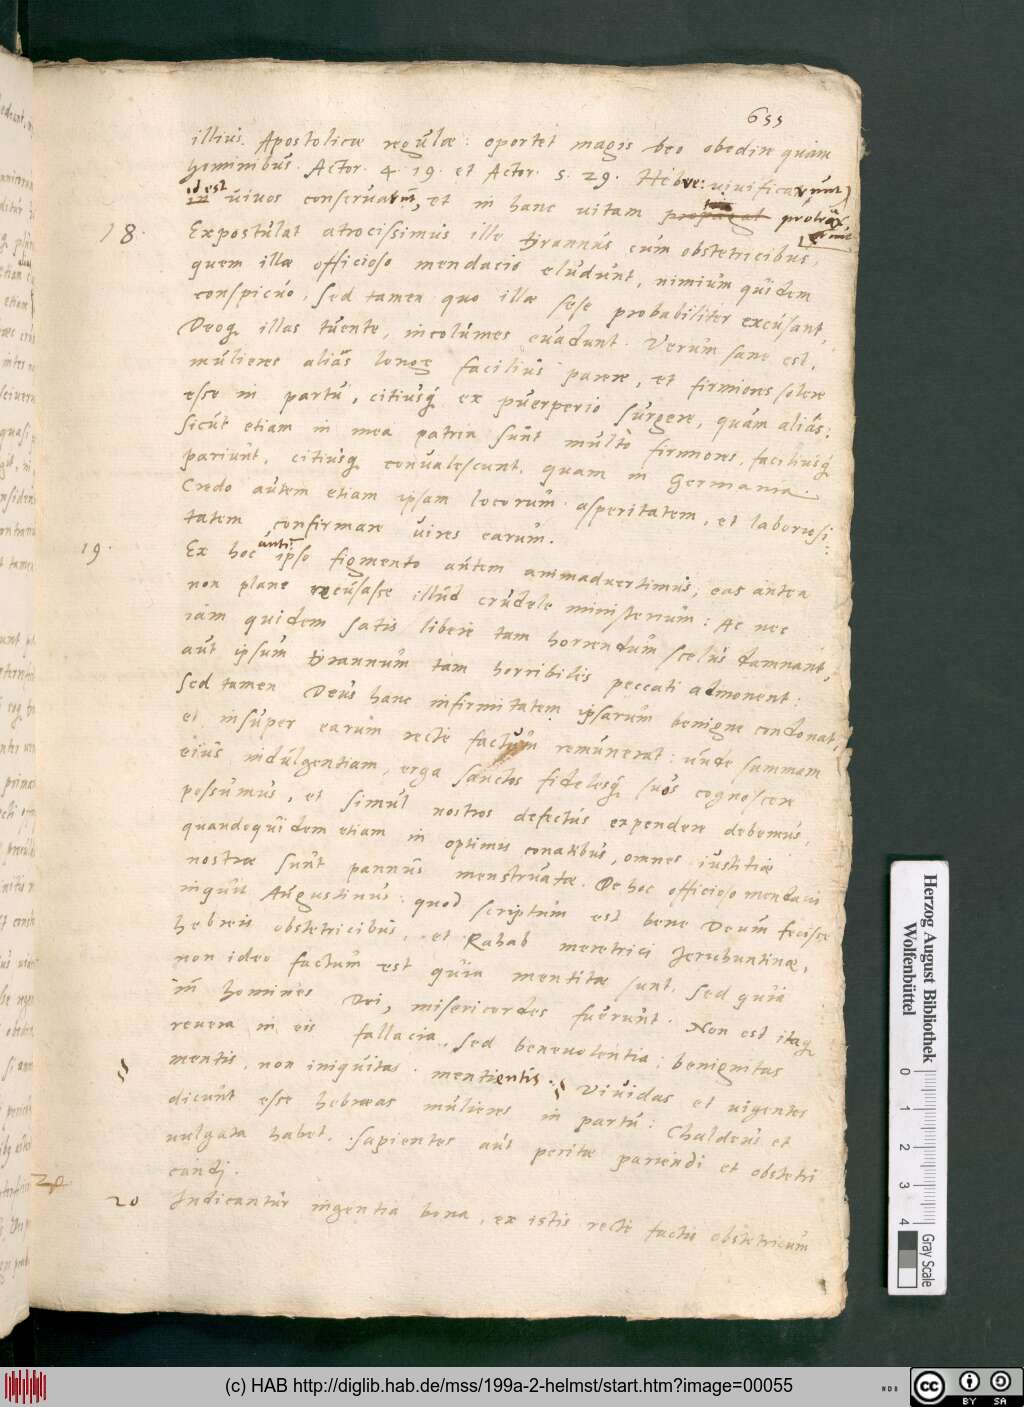 655
illius Apostolicæ regulæ: oportet magis Deo obedire quàm
hominibus. Actor. 4. 19. et Actor. 5. 29. Hebre: vivificarunt)
id est vivos conservarunt, et in hanc vitam propagat protraxerunt
18. Expostulat atrocissimus ille tirannus cum obstetricibus,
quem illæ officioso mendacio eludunt, nimium quidem
conspicuo, sed tamen quo illæ sese probabiliter excusant,
Deoq. illas tuente, incolumes evadunt. Verum sane est,
mulieres aliàs longe facilius parere, et firmiores solere
esse in partu, citiusq́ ex puerperio surgere, quàm aliás:
sicut etiam in mea patria sunt multò firmiores, faciliusq́
pariunt, citiusq. convalescunt, quam in Germania.
Credo autem etiam ipsam locorum asperitatem, et laboriosi:
tatem confirmare vires earum.
19. Ex hoc autē ipso figmento autem animadvertimus, eas antea
non plane recusasse illud crudele ministerium: Ac nec
iam quidem satis liberè tam horrendum scelus damnant,
aut ipsum tirannum tam horribilis peccati admonent:
Sed tamen Deus hanc infirmitatem ipsarum benigne condonat,
et insuper earum rectè factum remunerat: unde summam
eius indulgentiam, erga sanctos fidelesq́ suos cognoscere
possumus, et simul nostros defectus expendere debemus,
quandoquidem etiam in optimis conatibus, omnes iustitiæ
nostræ sunt pannus menstruatæ. De hoc officioso mendacii
inquit Augustinus: quod scriptum est bene Deum fecisse
hebreis obstetricibus, et Rahab meretrici Jerichuntinæ,
non ideo factum est quia mentitæ sunt, sed quia
in homines Dei, misericordes fuerunt. Non est itaq
revera in eis fallacia, sed benevolentia: benignitas
mentis, non iniquitas mentientis. § Vividas et vigentes
§ dicunt esse hebræas mulieres in partu: Chaldeus et
vulgata habet. Sapientes aut peritæ pariendi et obstetri
candj.
20
20 Indicantur ingentia bona, ex istis rectè factis obstetricum
Herzog August Bibliothek
Wolfenbüttel
0 1 2 3 4
Gray Scale
(c) HAB http://diglib.hab.de/mss/199a-2-helmst/start.htm?image=00055
cc BY SA